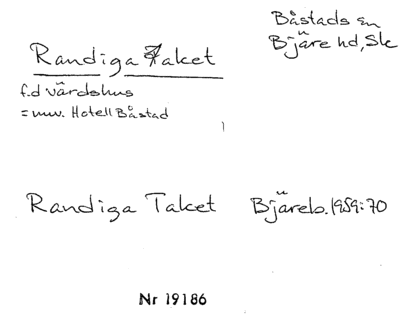 Båstads sn
Bjäre hd, Sk
Randiga Taket
f.d värdshus
= nuv. Hotell Båstad
Randiga Taket Bjäreb. 1959:70
Nr 19186